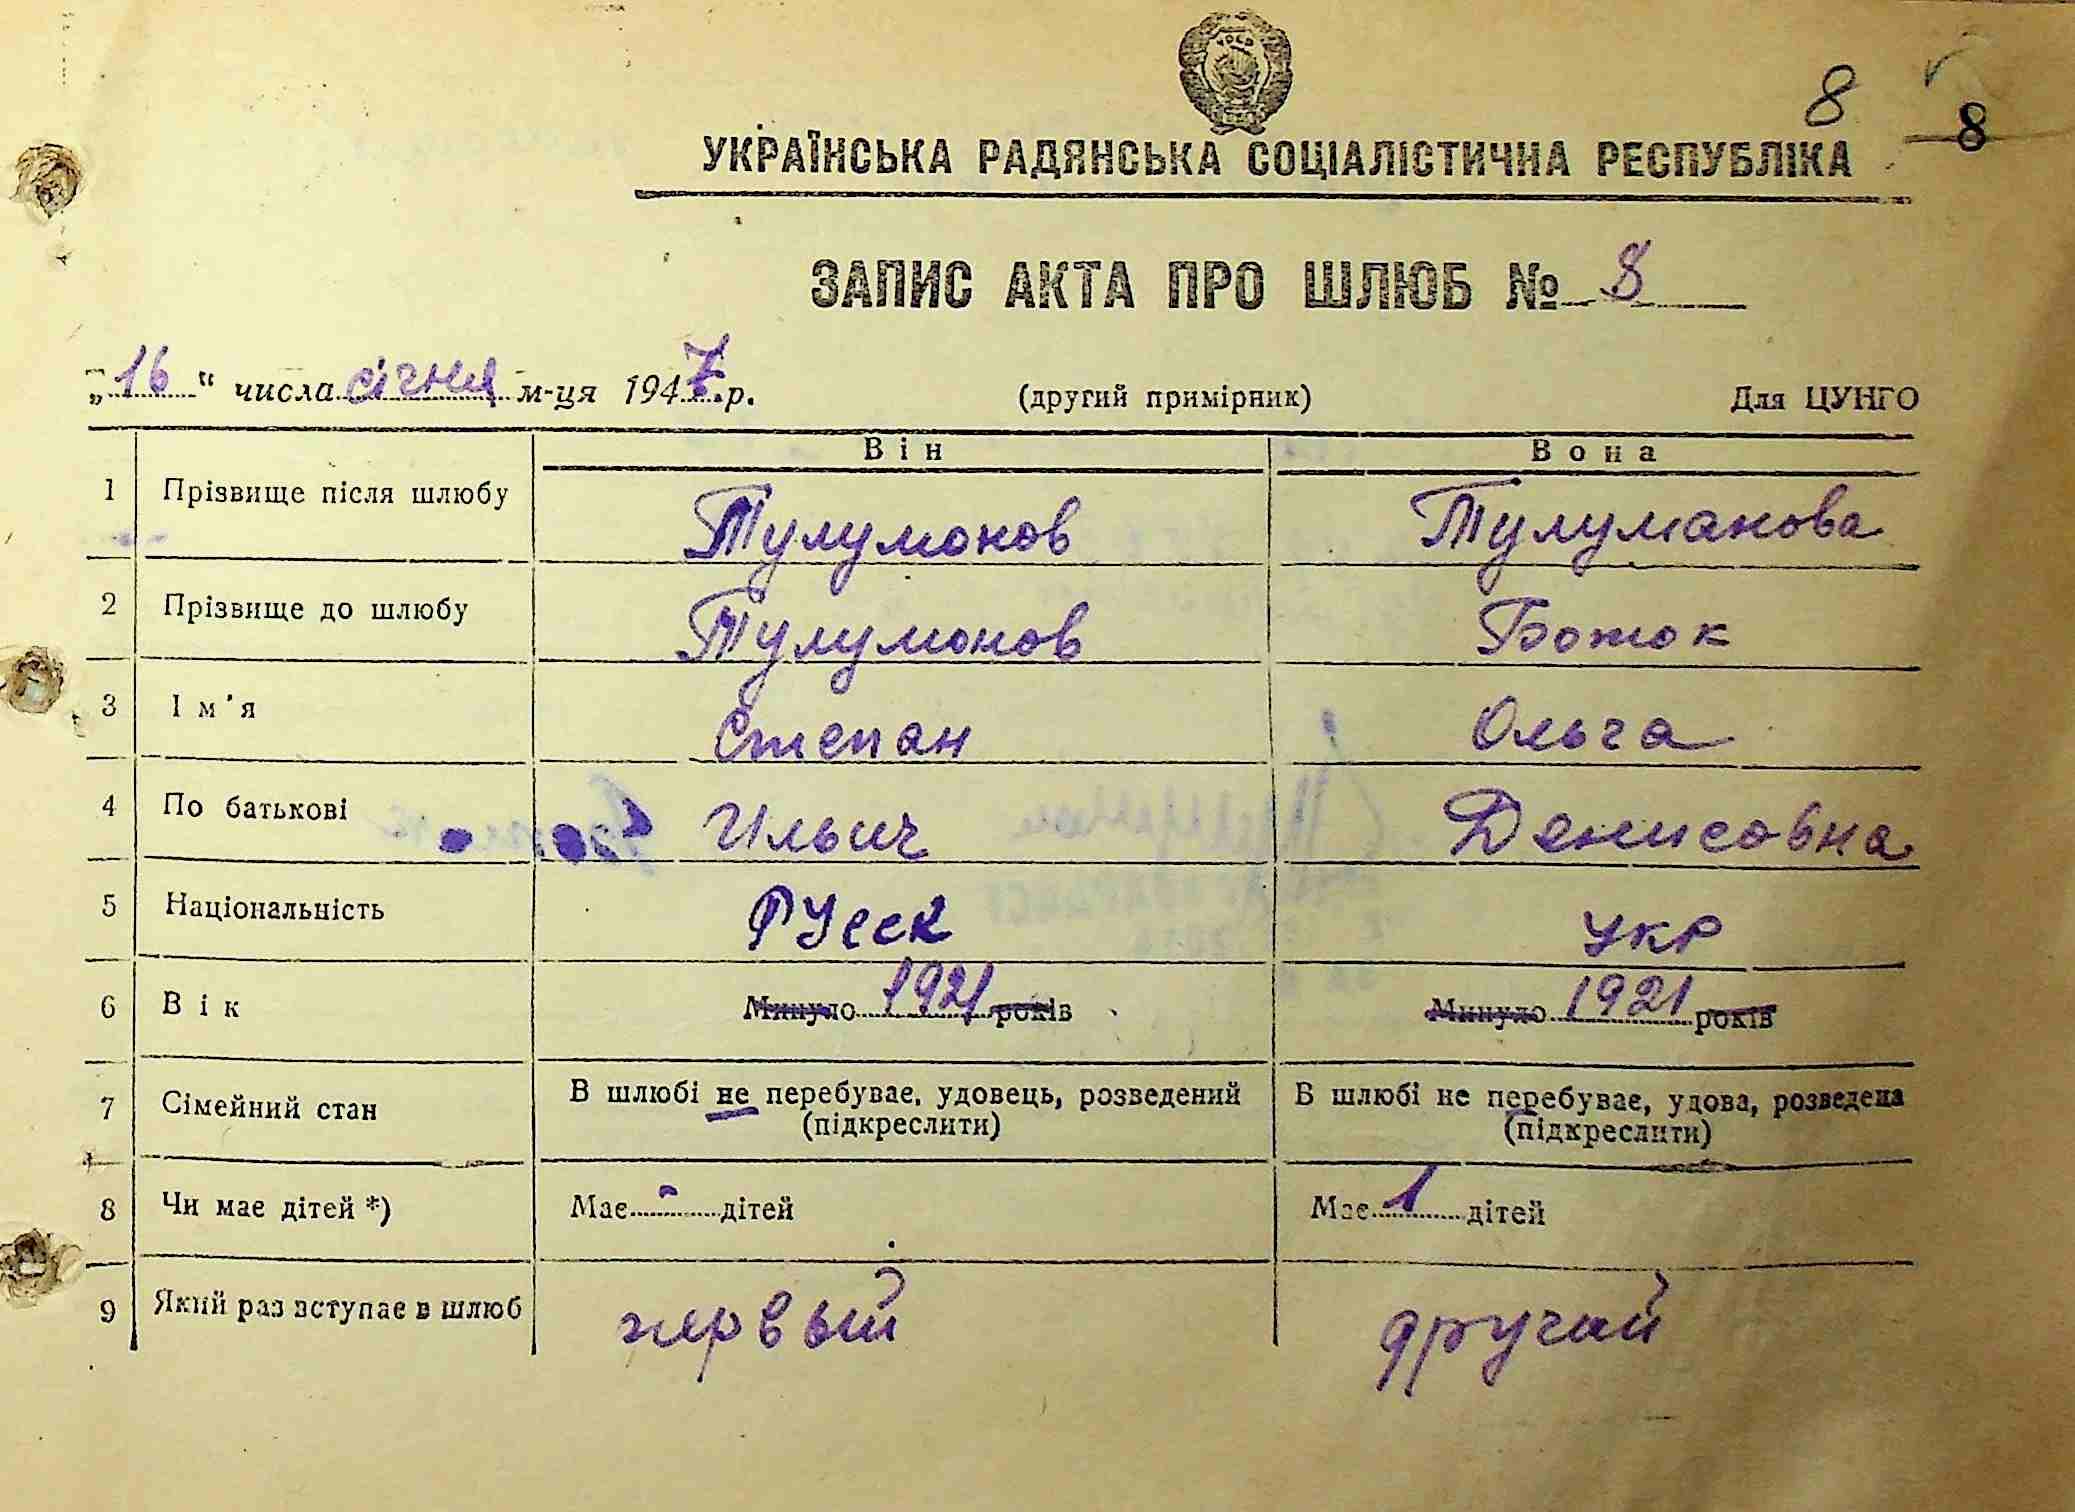 8 8
УКРАЇНСЬКА РАДЯНСЬКА СОЦІАЛІСТИЧНА РЕСПУБЛІКА
ЗАПИС АКТА ПРО ШЛЮБ № 8
„16“ числа січня м-ця 1947 р. (другий примірник) Для ЦУНГО
Він Вона
1 Прізвище після шлюбу Тулумонов Тулуманова
2 Прізвище до шлюбу Тулумонов Боток
3 Ім'я Степан Ольга
4 По батькові Ильич Денисовна
5 Національність Русск укр
6 Вік Минуло 1921 років Минуло 1921 років
7 Сімейний стан В шлюбі не перебуває, удовець, розведений В шлюбі не перебуває, удова, розведена
(підкреслити) (підкреслити)
8 Чи має дітей *) Має - дітей Має 1 дітей
9 Який раз вступає в шлюб первый другий